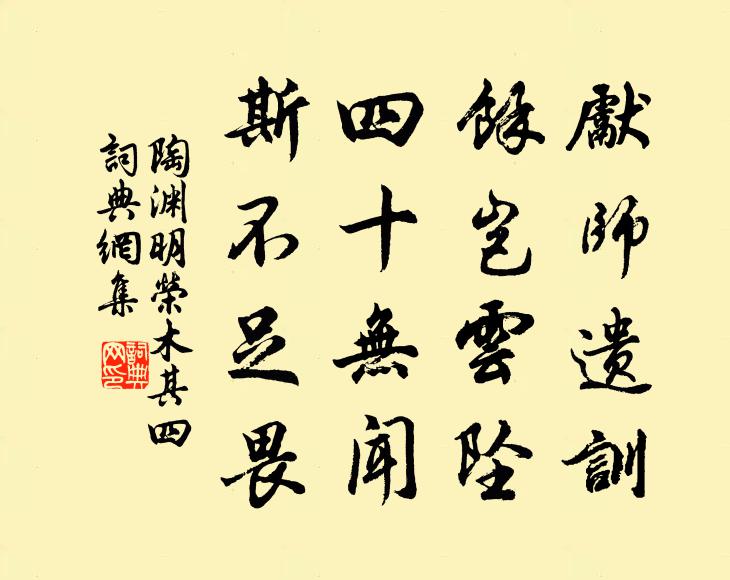 獻師遺訓
餘豈雲墜
四十無聞
斯不足畏
陶渊明榮木其四
詞典網集
詞典网印